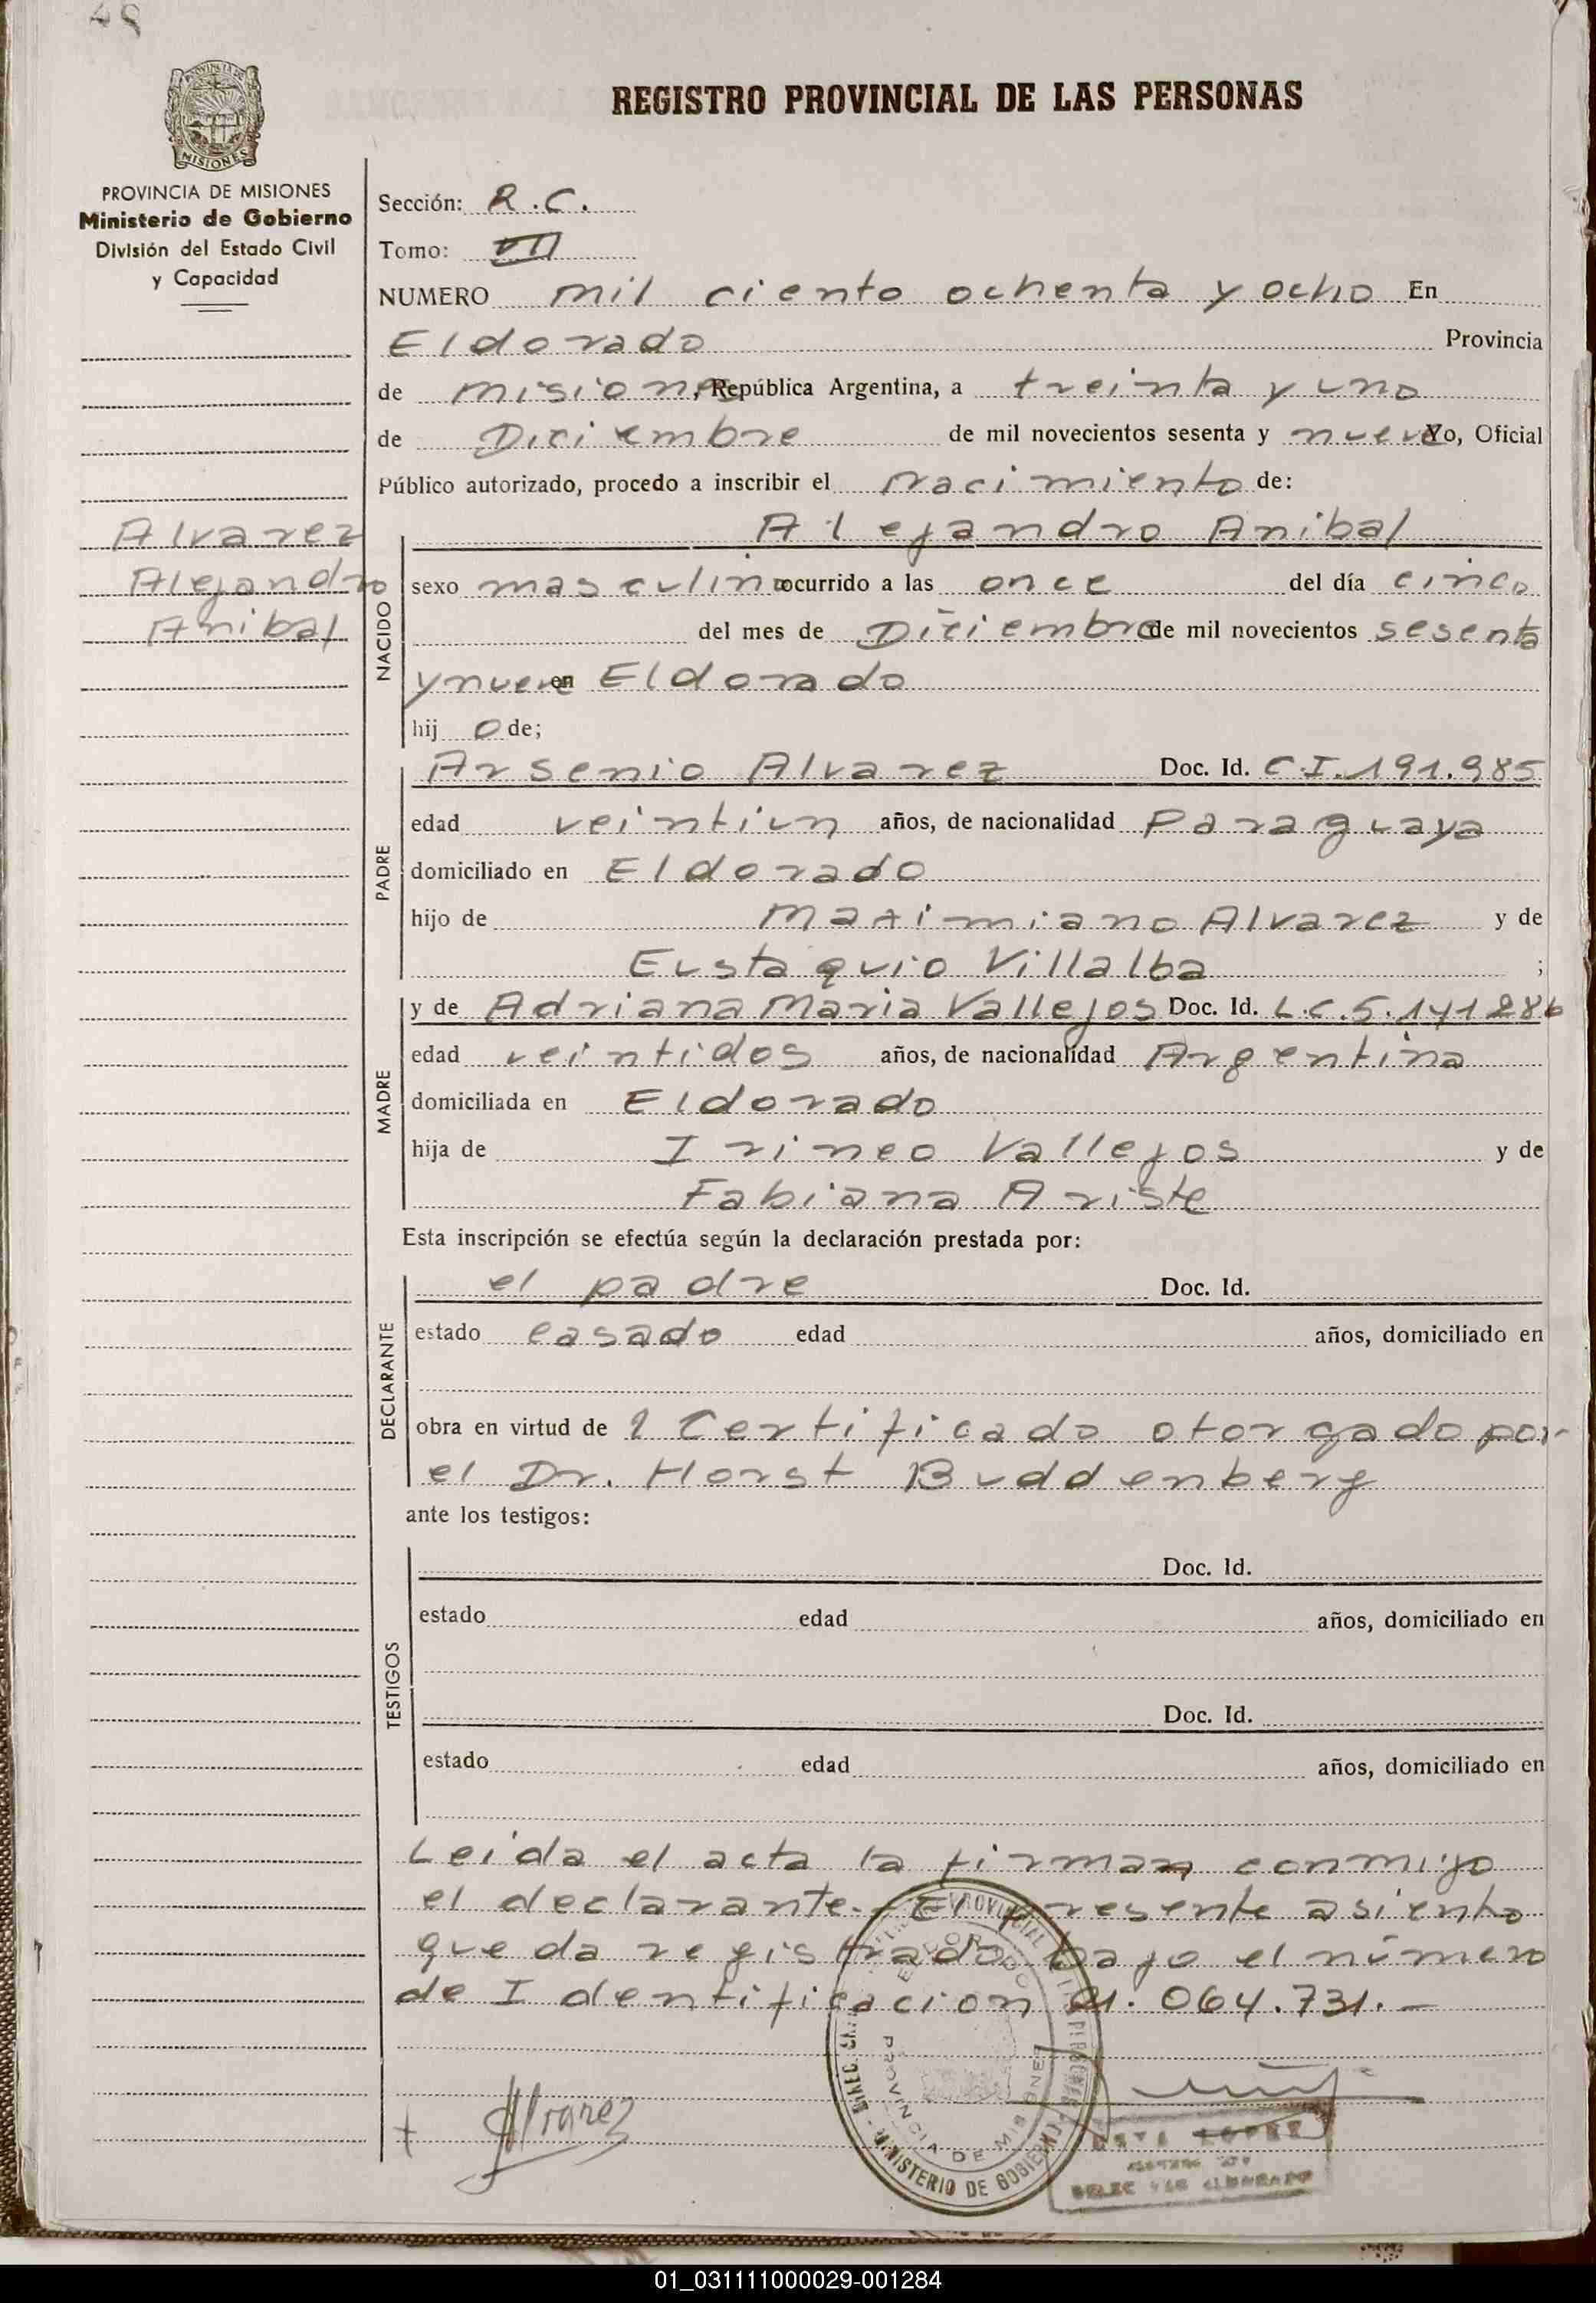 48
REGISTRO PROVINCIAL DE LAS PERSONAS
PROVINCIA DE
MISIONES
PROVINCIA DE MISIONES
Ministerio de Gobierno
División del Estado Civil
y Capacidad
Alvarez
Alejandro
Anibal
Sección: R.C.
Tomo: VII
NUMERO mil ciento ochenta y ocho En
Eldorado Provincia
de misiones, República Argentina, a treinta y uno
de Diciembre de mil novecientos sesenta y nueve Yo, Oficial
Público autorizado, procedo a inscribir el nacimiento de:
NACIDO
Alejandro Anibal
sexo masculino ocurrido a las once del día cinco
del mes de Diciembre de mil novecientos sesenta
y nueve en Eldorado
hij o de;
PADRE
Arsenio Alvarez Doc. Id. C.I. 191.985
edad veintiun años, de nacionalidad Paraguaya
domiciliado en Eldorado
hijo de Maximiano Alvarez y de
Eustaquio Villalba ;
MADRE
y de Adriana Maria Vallejos Doc. Id. L.C. 5.141286
edad veintidos años, de nacionalidad Argentina
domiciliada en Eldorado
hija de Irineo Vallejos y de
Fabiana Ariste
Esta inscripción se efectúa según la declaración prestada por:
DECLARANTE
el padre Doc. Id.
estado casado edad años, domiciliado en
obra en virtud de 1 Certificado otorgado por
el Dr. Horst Buddenberg
ante los testigos:
TESTIGOS
Doc. Id.
estado edad años, domiciliado en
Doc. Id.
estado edad años, domiciliado en
Leida el acta la firman conmigo
el declarante.- El presente asiento
queda registrado bajo el número
de Identificacion 21.064.731.-
Alvarez
PROVINCIAL
ELDORADO
PROVINCIA DE MISIONES
MINISTERIO DE GOBIERNO
LOPEZ
ELDORADO
01_031111000029-001284